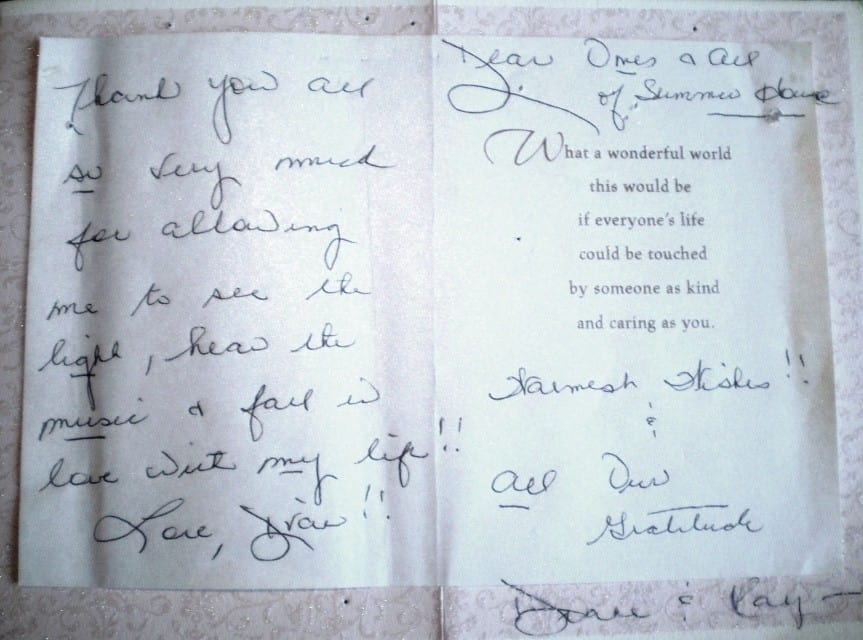 Thank you all
so very much
for allowing
me to see the
light, hear the
music & fall in
love with my life!!
Love,
Dear Ones & All
of Summer House
What a wonderful world
this would be
if everyone's life
could be touched
by someone as kind
and caring as you.
Warmest Wishes!!
&
All Our
Gratitude
& Kay